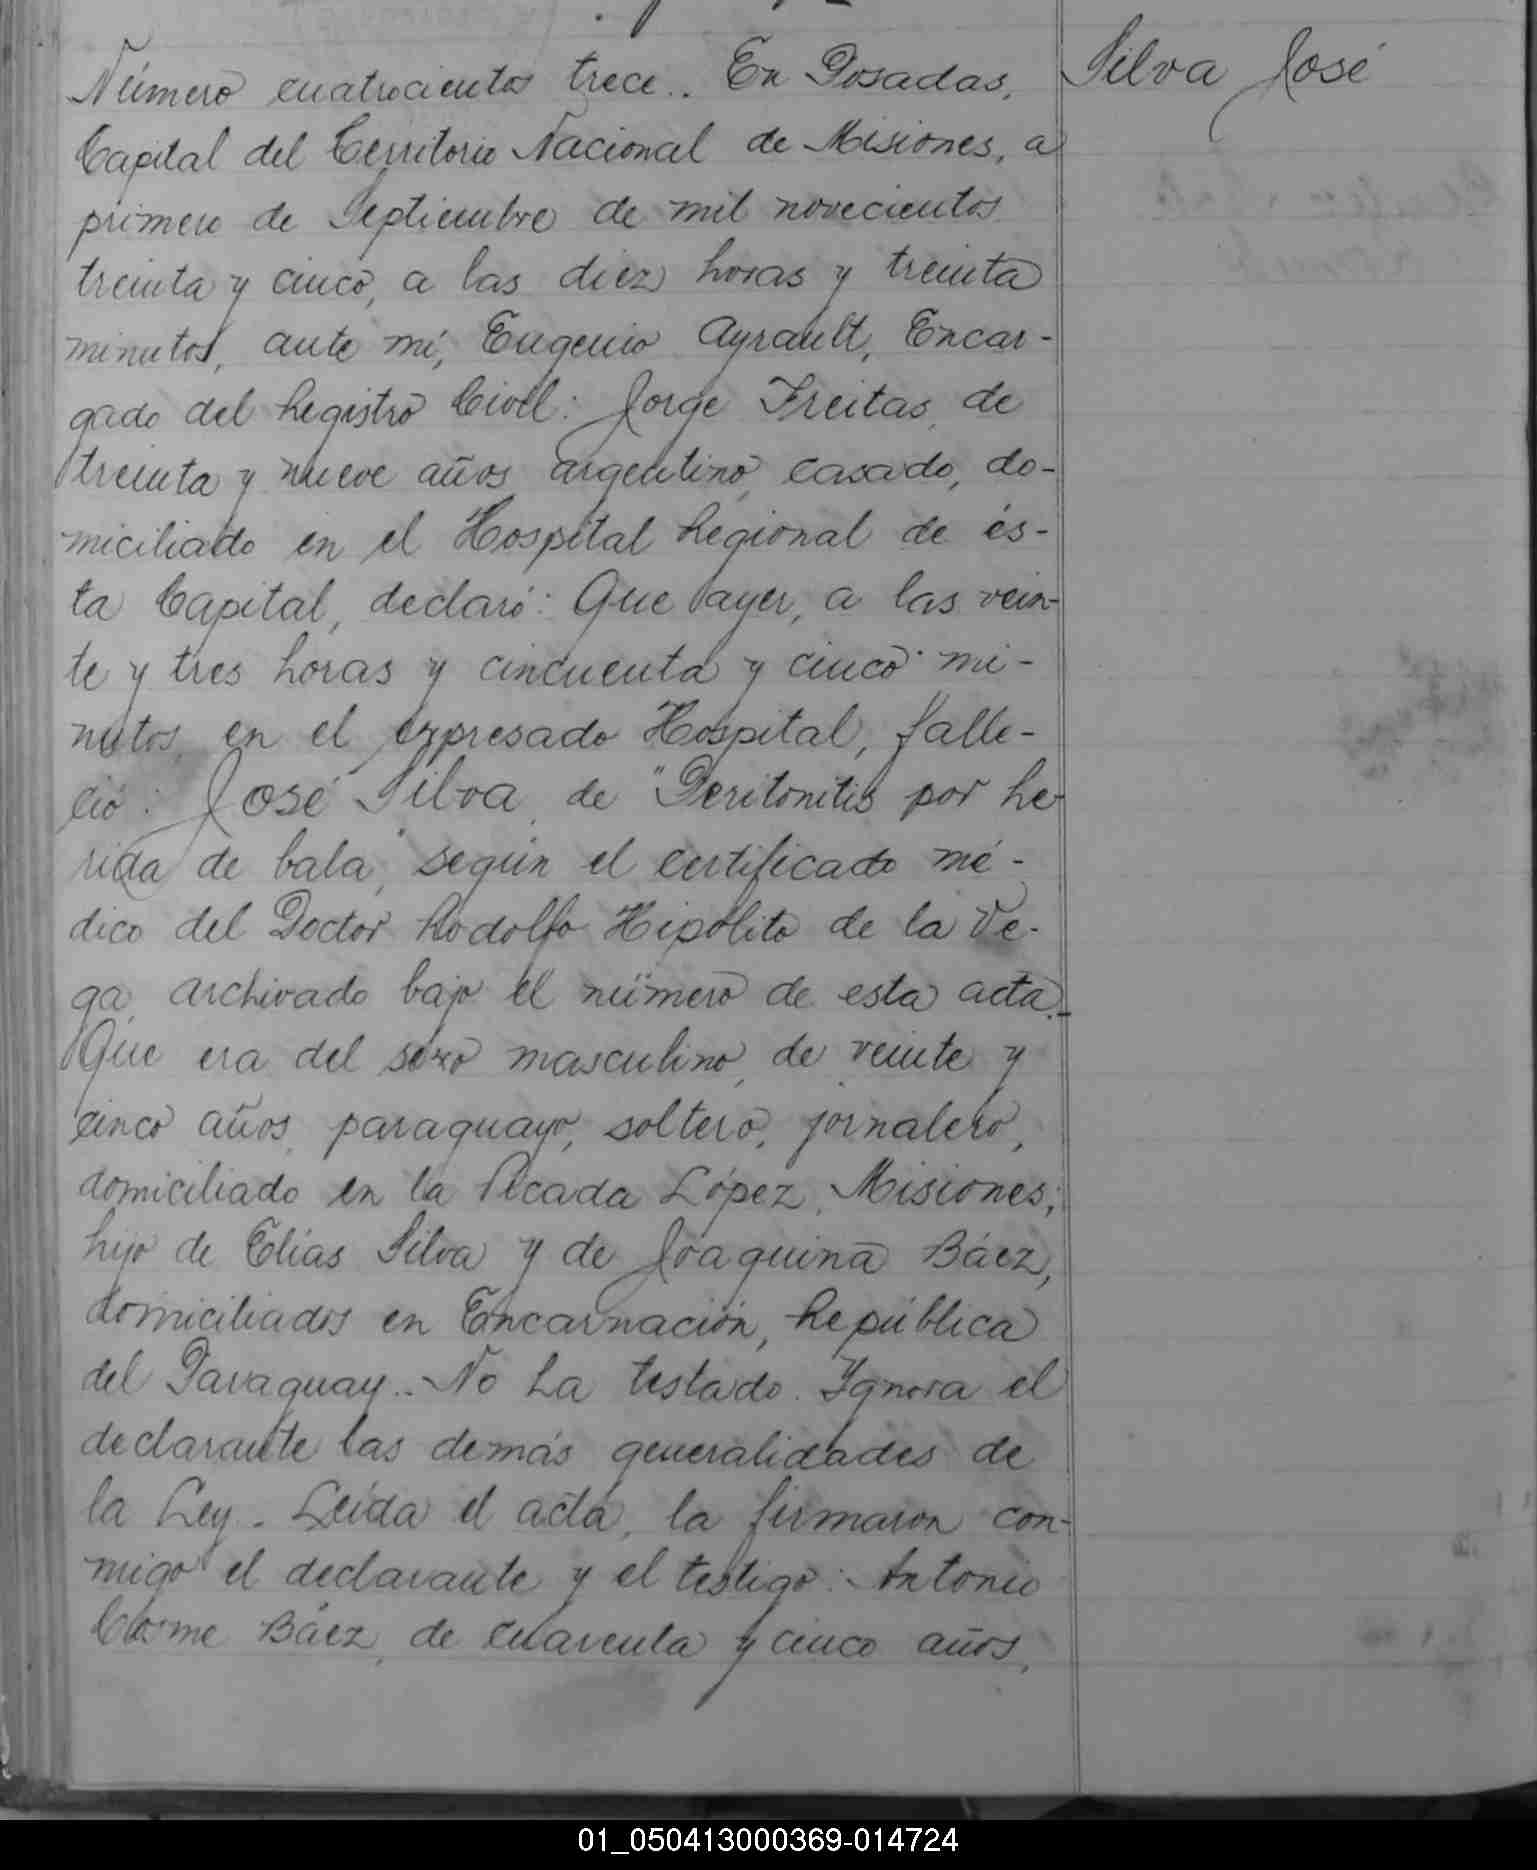 Número cuatrocientos trece.. En Posadas,
Silva José
Capital del Territorio Nacional de Misiones, a
primero de Septiembre de mil novecientos
treinta y cinco, a las diez horas y treinta
minutos, ante mí, Eugenio Ayrault, Encar-
gado del Registro Civil: Jorge Freitas, de
treinta y nueve años, argentino, casado, do-
miciliado en el Hospital Regional de és-
ta Capital, declaró: Que ayer, a las vein-
te y tres horas y cincuenta y cinco mi-
nutos, en el expresado Hospital, falle-
ció: José Silva, de "Peritonitis por he-
rida de bala", según el certificado mé-
dico del Doctor Rodolfo Hipólito de la Ve-
ga, archivado bajo el número de esta acta.-
Que era del sexo masculino, de veinte y
cinco años, paraguayo, soltero, jornalero,
domiciliado en la Picada López, Misiones;
hijo de Elías Silva y de Joaquina Báez,
domiciliados en Encarnación, República
del Paraguay.. No ha testado. Ignora el
declarante las demás generalidades de
la Ley.- Leída el acta, la firmaron con-
migo el declarante y el testigo: Antonio
Cosme Báez, de cuarenta y cinco años,
01_050413000369-014724